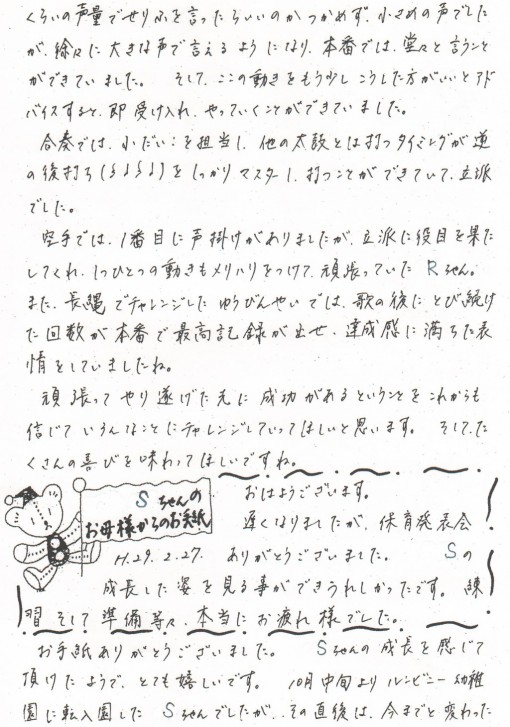 くらいの声量でせりふを言ったらいいのかつかめず、小さめの声でした
が、徐々に大きな声で言えるようになり、本番では、堂々と言うこと
ができていました。 そして、ここの動きをもう少しこうした方がいいとアド
バイスすると、即受け入れ、やっていくことができていました。
合奏では、小だいこを担当し、他の太鼓とは打つタイミングが逆
の後打ち()をしっかりマスターし、打つことができていて、立派
でした。
空手では、1番目に声掛けがありましたが、立派に役目を果た
してくれ、1つひとつの動きもメリハリをつけて、頑張っていたRちゃん。
また、長縄でチャレンジしたゆうびんやいでは、歌の後にとび続け
た回数が本番で最高記録が出せ、達成感に満ちた表
情をしていましたね。
頑張ってやり遂げた先に成功があるということをこれからも
信じていろんなことにチャレンジしていってほしいと思います。 そして、た
くさんの喜びを味わってほしいですね。
Sちゃんの
お母様からのお手紙
おはようございます。
遅くなりましたが、保育発表会
H.29.2.27. ありがとうございました。 Sの
成長した姿を見る事ができうれしかったです。 練
習そして準備等々、本当にお疲れ様でした。
お手紙ありがとうございました。 Sちゃんの成長を感じて
頂けたようで、とても嬉しいです。 10月中旬よりルンビニー幼稚
園に転入園したSちゃんでしたが、その直後は、今までと変わった